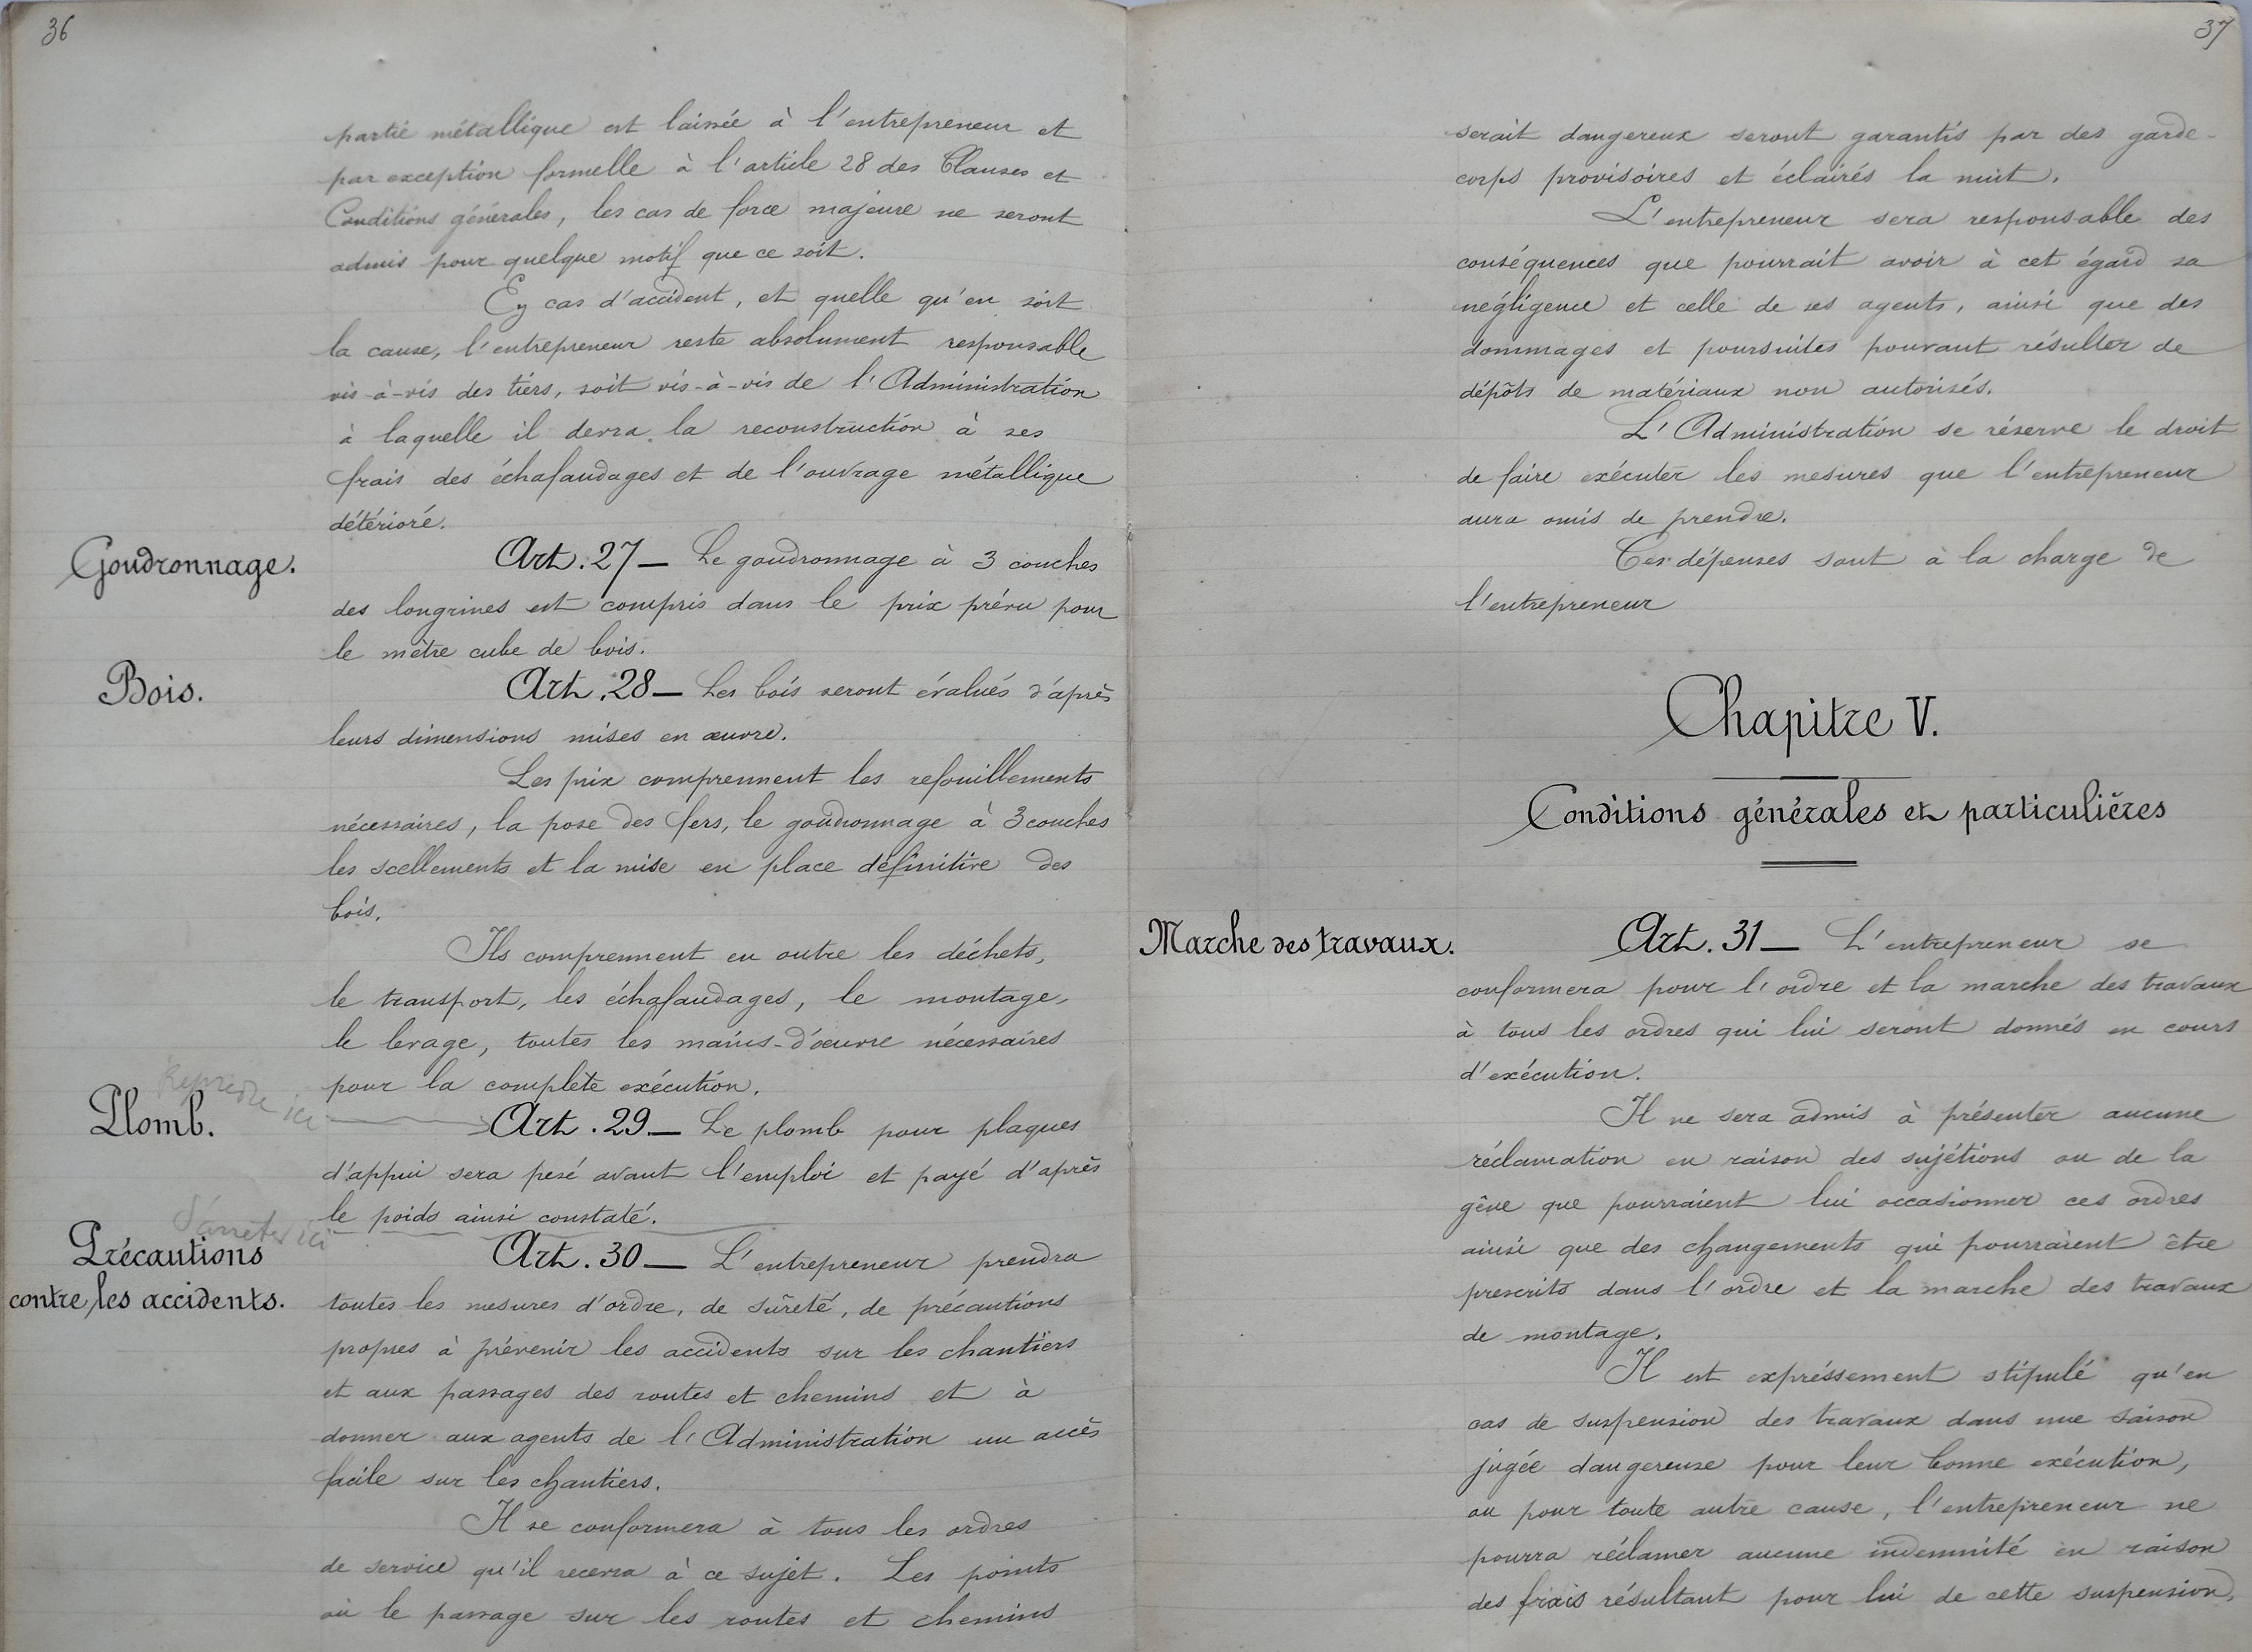 36
partie métallique est laissée à l'entrepreneur et
par exception formelle à l'article 28 des Clauses et
Conditions générales, les cas de force majeure ne seront
admis pour quelque motif que ce soit.
En cas d'accident, et quelle qu'en soit
la cause, l'entrepreneur reste absolument responsable
vis-à-vis des tiers, soit vis-à-vis de l'Administration
à laquelle il devra la reconstruction à ses
frais des échafaudages et de l'ouvrage métallique
détérioré.
Goudronnage.
Art. 27 — Le goudronnage à 3 couches
des longrines est compris dans le prix prévu pour
le mètre cube de bois.
Bois.
Art. 28 — Les bois seront évalués d'après
leurs dimensions mises en œuvre.
Les prix comprennent les refouillements
nécessaires, la pose des fers, le goudronnage à 3 couches
les scellements et la mise en place définitive des
bois.
Ils comprennent en outre les déchets,
le transport, les échafaudages, le montage,
le levage, toutes les mains-d'œuvre nécessaires
pour la complète exécution.
Reprendre ici
Plomb.
Art. 29 — Le plomb pour plaques
d'appui sera pesé avant l'emploi et payé d'après
le poids ainsi constaté.
S'arreter ici
Précautions
contre les accidents.
Art. 30 — L'entrepreneur prendra
toutes les mesures d'ordre, de sûreté, de précautions
propres à prévenir les accidents sur les chantiers
et aux passages des routes et chemins et à
donner aux agents de l'Administration un accès
facile sur les chantiers.
Il se conformera à tous les ordres
de service qu'il recevra à ce sujet. Les points
où le passage sur les routes et chemins
37
serait dangereux seront garantis par des garde-
corps provisoires et éclairés la nuit.
L'entrepreneur sera responsable des
conséquences que pourrait avoir à cet égard sa
négligence et celle de ses agents, ainsi que des
dommages et poursuites pouvant résulter de
dépôts de matériaux non autorisés.
L'Administration se réserve le droit
de faire exécuter les mesures que l'entrepreneur
aura omis de prendre.
Ces dépenses sont à la charge de
l'entrepreneur
Chapitre V.
Conditions générales et particulières
Marche des travaux.
Art. 31 — L'entrepreneur se
conformera pour l'ordre et la marche des travaux
à tous les ordres qui lui seront donnés en cours
d'exécution.
Il ne sera admis à présenter aucune
réclamation en raison des sujétions ou de la
gêne que pourraient lui occasionner ces ordres
ainsi que des changements qui pourraient être
prescrits dans l'ordre et la marche des travaux
de montage.
Il est expréssement stipulé qu'en
cas de suspension des travaux dans une saison
jugée dangereuse pour leur bonne exécution,
ou pour toute autre cause, l'entrepreneur ne
pourra réclamer aucune indemnité en raison
des frais résultant pour lui de cette suspension,